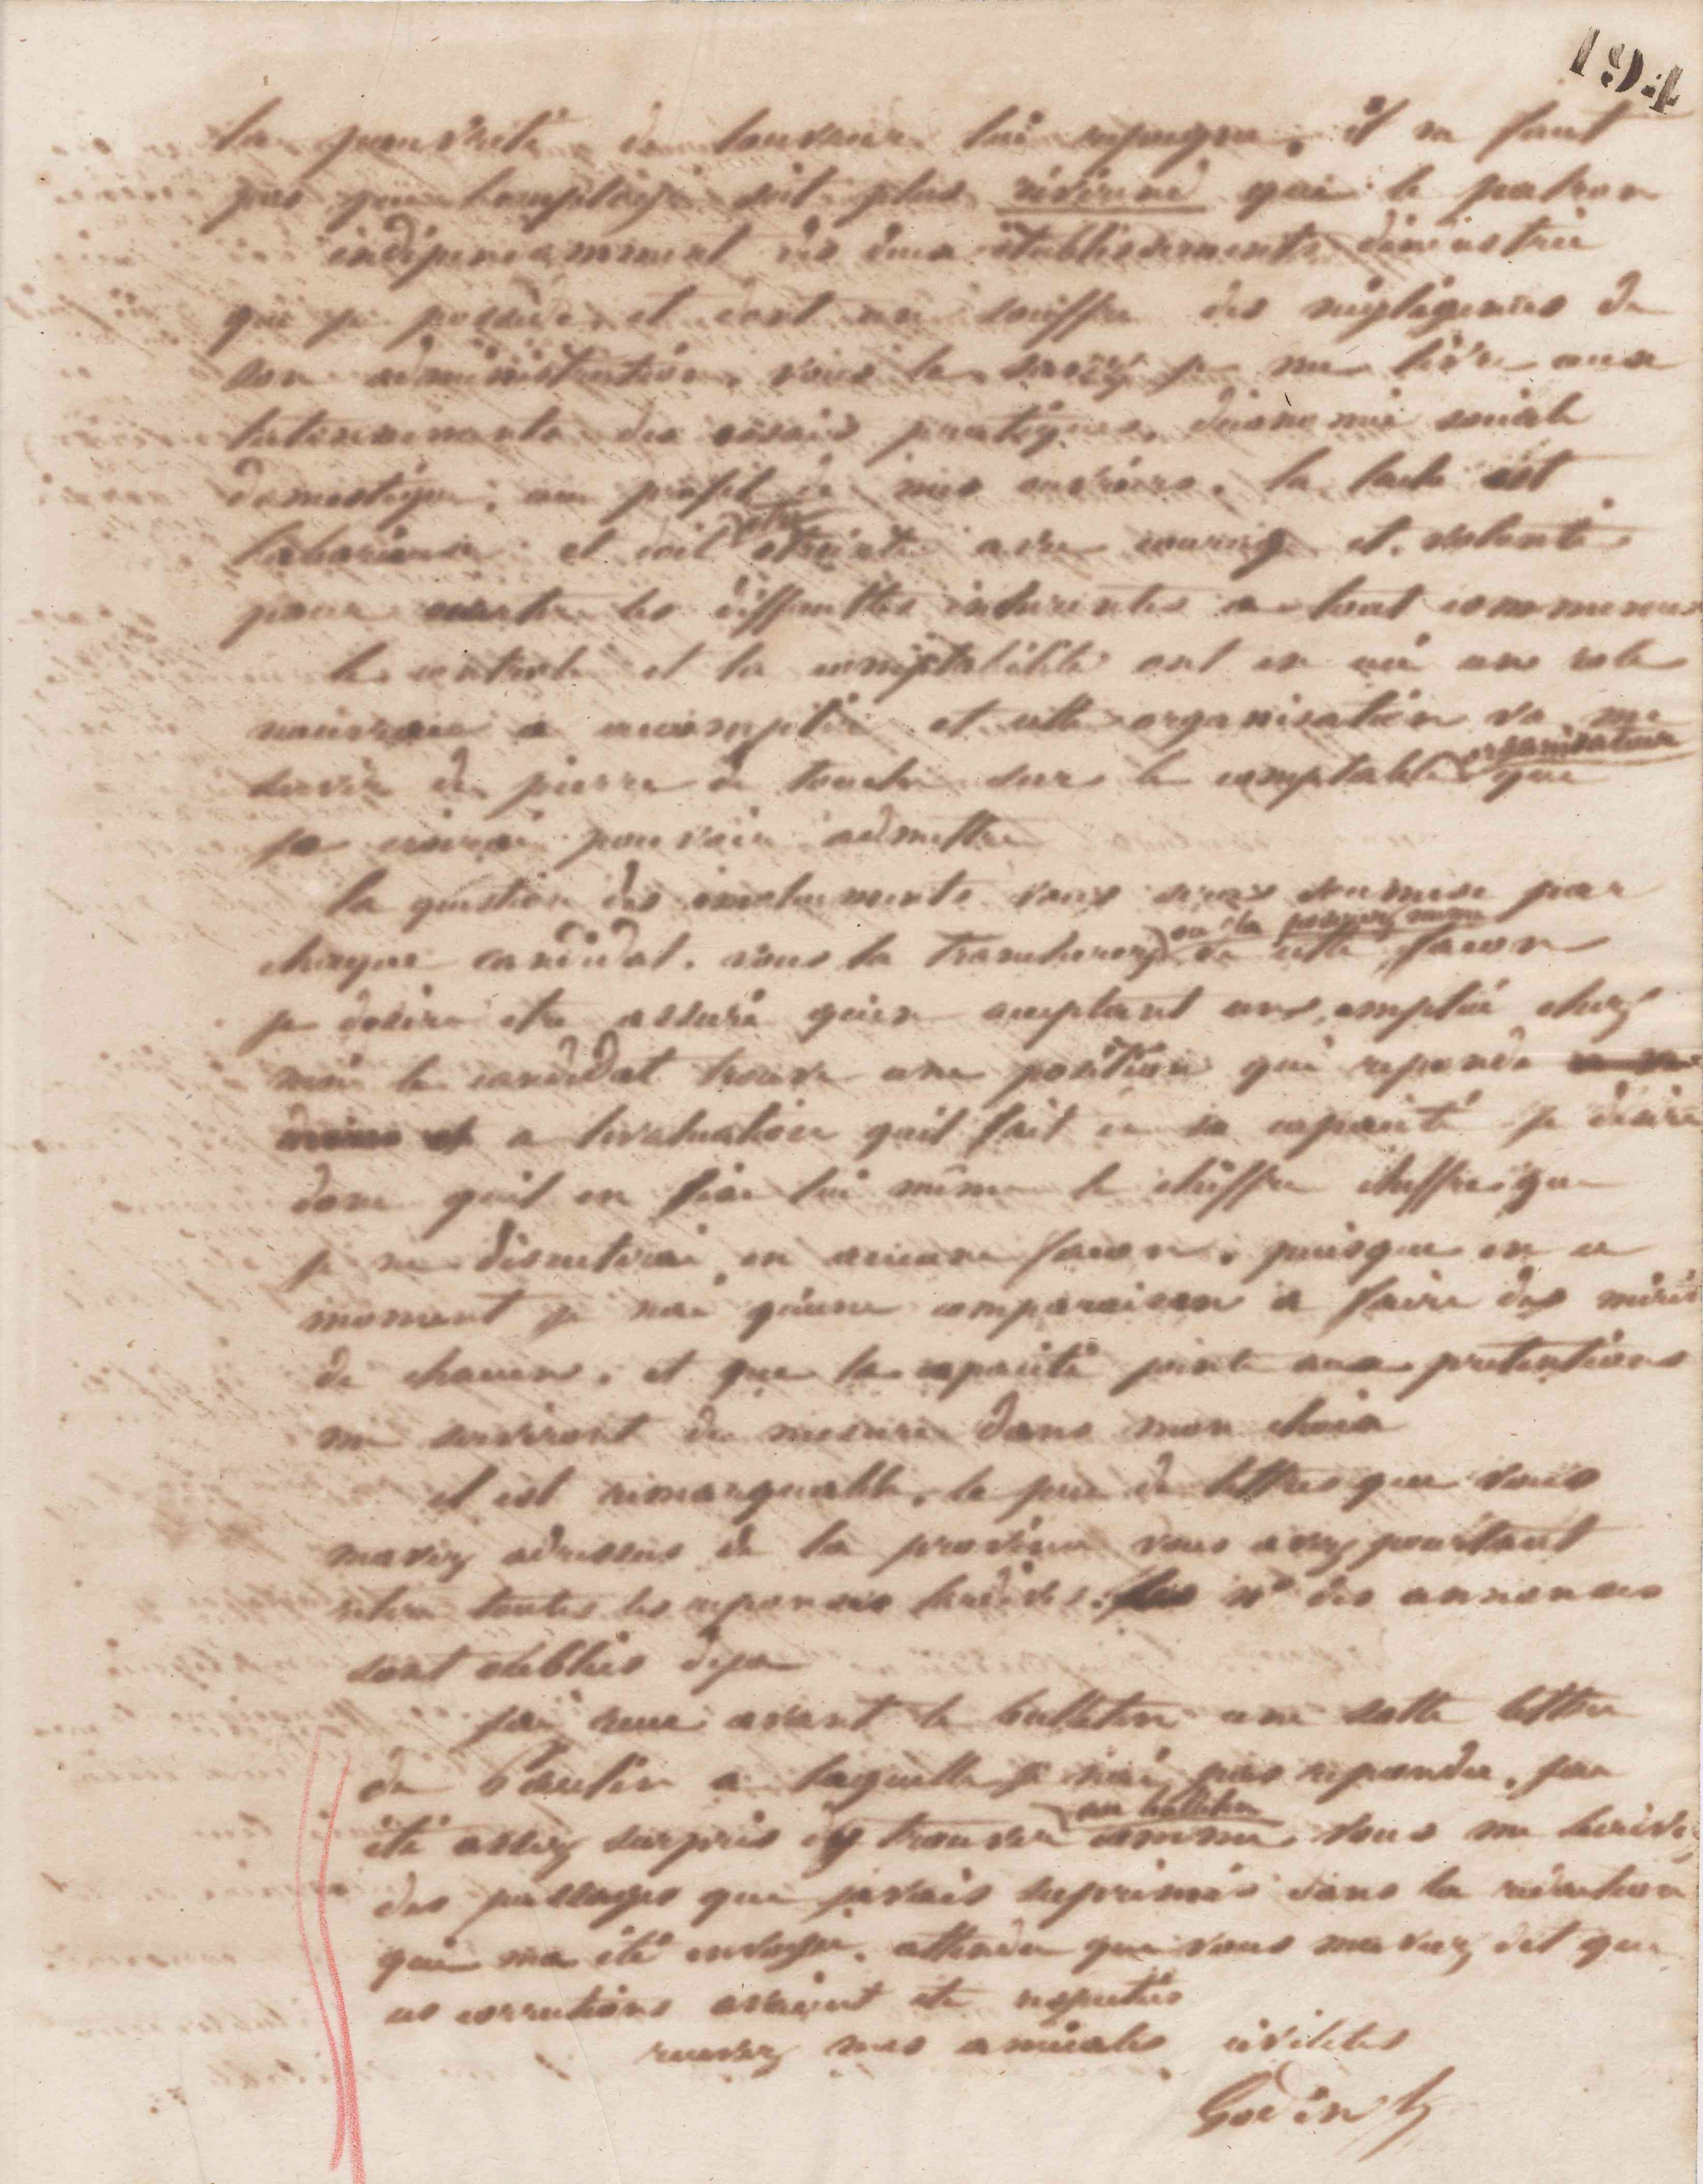 194
la pauvreté de louvrier lui repugne, il ne faut
pas que lemployé soit plus révérend que le patron
indépendamment des deux établissements dindustrie
que je possède, et dont un souffre des negligences de
son administration, vous le savez je me livre aux
tatonnements des essais pratiques, déconomie sociale
domestique, au profit de mes ouvriers. la tache est
laborieuse et doit être avec courage et volonté
pour les difficultés inhérentes a tout commence
le controle et la comptabilité ont en vue un role
nouveau a accomplir et cette organisation va me
servir de pierre de touche sur le comptable organisateur que
je croirai pouvoir admettre
la question des émoluments vous sera soumise par
chaque candidat. vous la trancherez de cette façon
je désire etre assuré quen acceptant un emploi chez
moi le candidat trouve une position qui reponde
a levaluation quil fait de sa capacité je désire
donc quil en fixe lui même le chiffre chiffre que
je ne discuterai en aucune facon, puisque en ce
moment je nai quune comparaison a faire des mérites
de chacun, et que la capacité jointe aux pretentions
me serviront de mesure dans mon choix
il est remarquable, le peu de lettres que vous
mavez adressées de la province vous avez pourtant
retiré toutes les reponses les nos des annonces
sont oubliés deja
jai reçu avant le bulletin une sotte lettre
de a laquelle je nai pas repondu, jai
été assez surpris dy trouver au bulletin comme vous me lecrivez
des passages que javais suprimés dans la rédaction
qui ma été envoyée, attendu que vous maviez dit que
ces corrections avaient été respectées
recevez mes amicales civilités
Godin